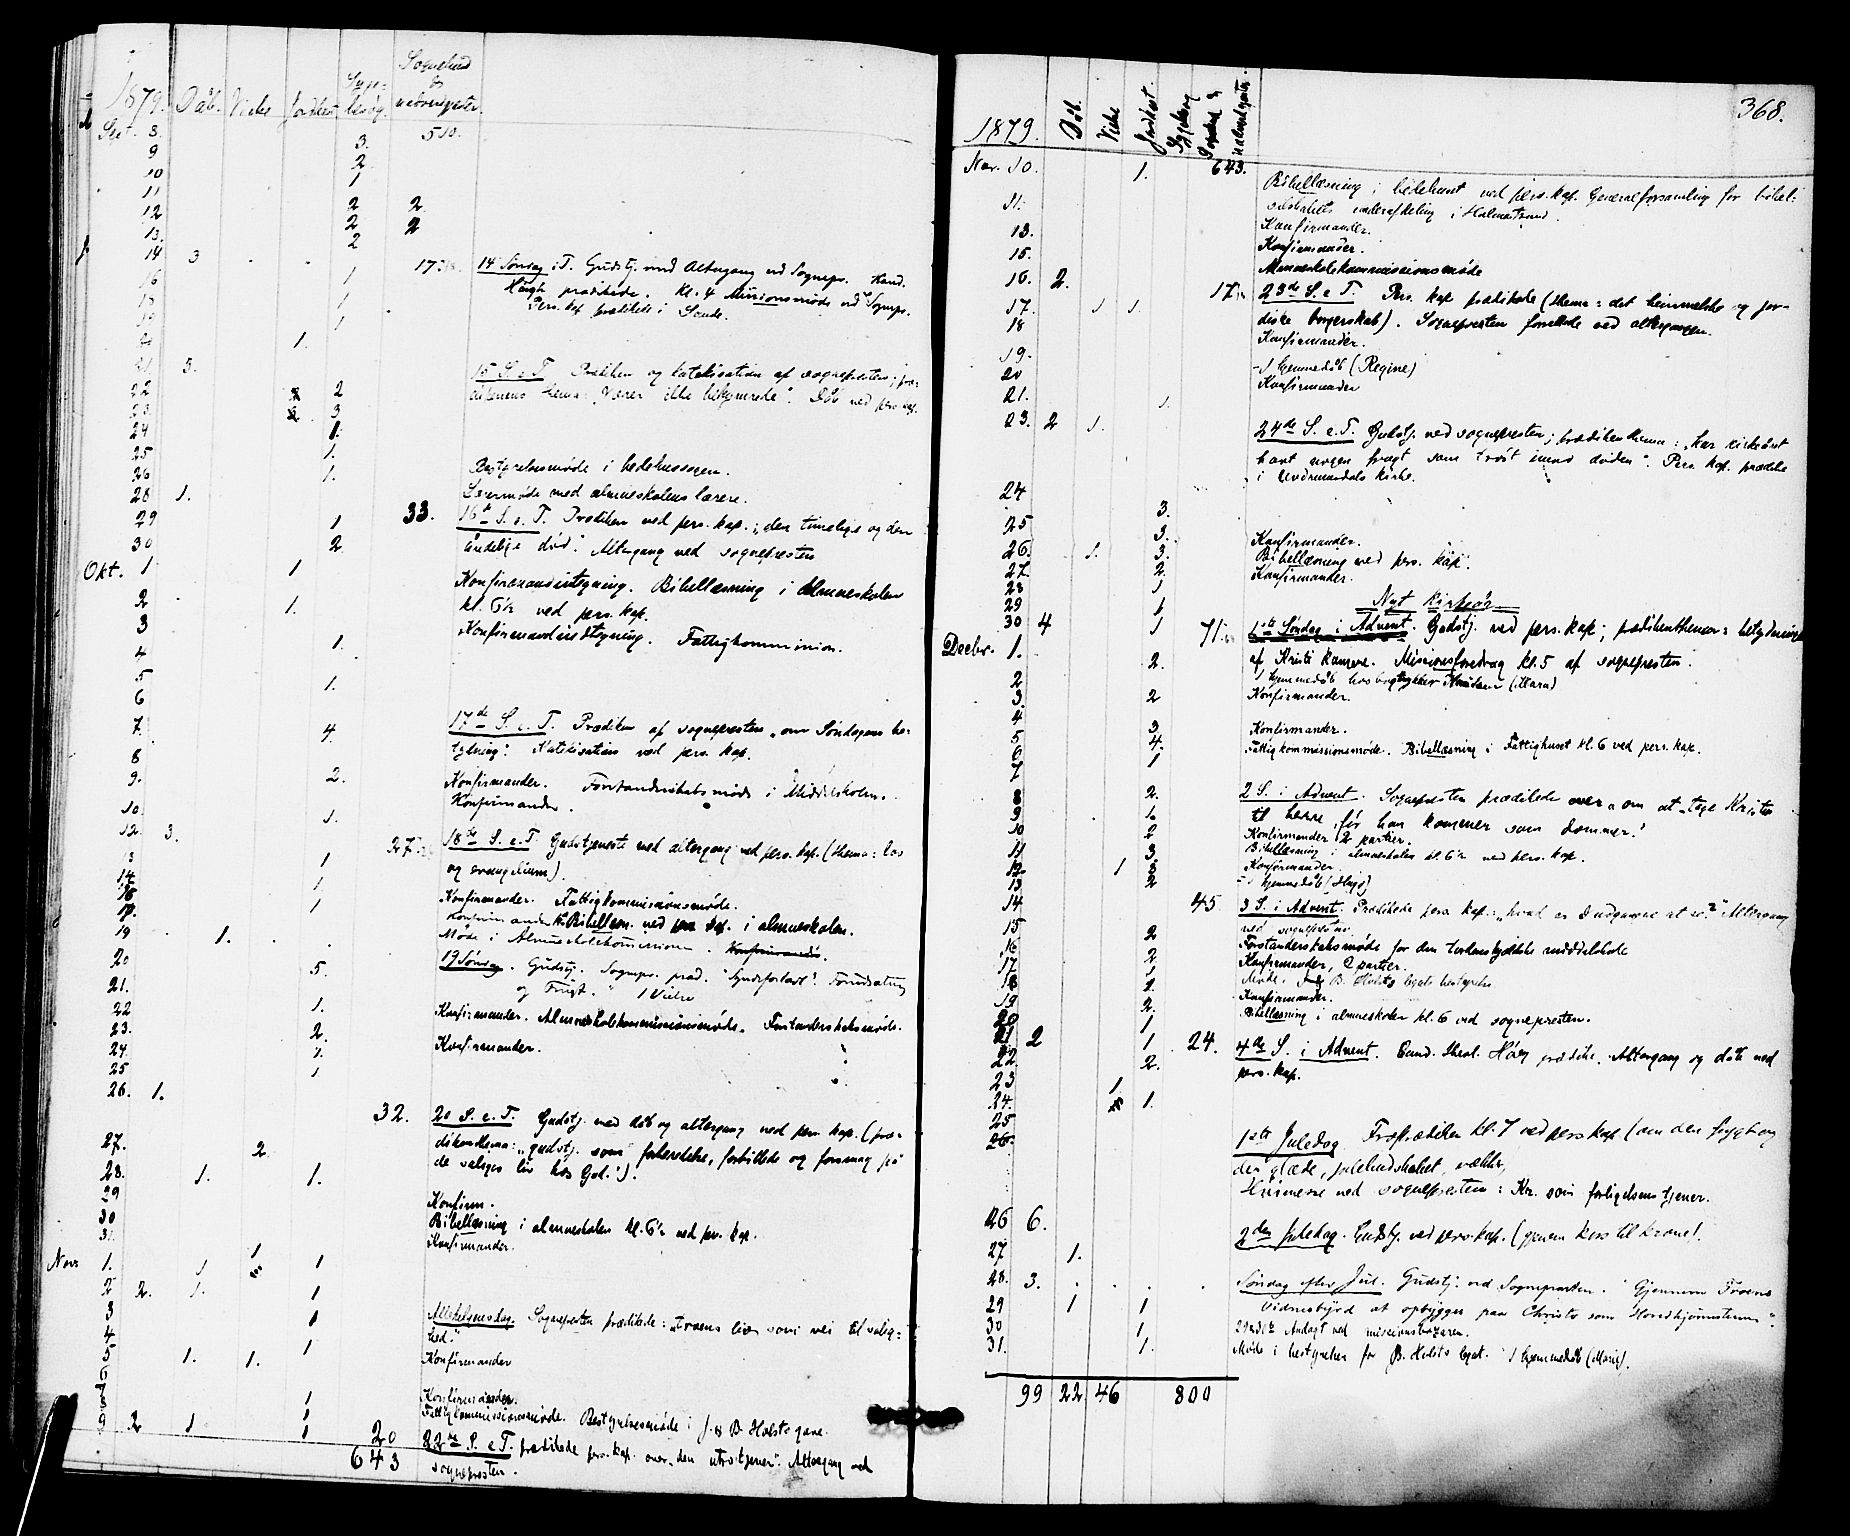 1879. Dåb. Vielse Jordfest. Syge-
besøg. Sognebud
&
nadvergjester.
Sept. 8. 3. 510.
9 2
10 1
11 2 2
12 2 2
13. 2
14 3 17 14 Søndag e. T. Gudstj. med Altergang ved Sognepr. Kand.
Haugh prædikede. Kl. 4 Missionsmøde ved Sognepr.
Pers. kap prædikede i Sande.
16 1
18 1
19 1
20 1.
21 3. 15 S. e. T. Prædiken og katekisation af sognepresten; præ-
dikenens thema: "Værer ikke bekymrede". Dåb ved pers. kap.
22 2
23. 3
24 1.
25 1.
26 1. Bestyrelsesmøde i bedehussagen.
28 1. Lærermøde med almueskolens lærere.
29 1 33. 16de S. e. T. Prædiken ved pers. kap.; den timelige og den
åndelige død. Altergang ved sognepresten
30 2
Okt. 1 1 Konfirmandindtegning. Bibellæsning i almueskolen
kl. 6½ ved pers. kap.
2 1.
3 Konfirmandindtegning. Fattigkommission.
4 1.
5
6 1.
7. 4 17de S. e. T. Prædiken af sognepresten "om Søndagens be-
tydning". Katekisation ved pers. kap.
8
9. 2. Konfirmander. Forstanderskabsmøde i Middelskolen.
Konfirmander.
10 1.
12. 3. 27 18de S. e. T. Gudstjeneste med altergang ved pers. kap. (thema: lov
og evangelium).
13 1
14 1
16 1 Konfirmander. Fattigkommissionsmøde.
17. Konfirmander. Bibellæsn. ved pers kap. i almueskolen.
19 1. Møde i Almueskolekommission. Konfirmander.
20 5. 19 Søndag. Gudstj. Sognepr. præd. "Syndsforladt". Forudsætning
og Frugt." 1 Vielse
21.
22 1. Konfirmander. Almueskolekommissionsmøde. Forstanderskabsmøde.
23. 2.
24. 1. Konfirmander.
25 1
26. 1.
32. 20 S. e. T. Gudstj. med dåb og altergang ved pers. kap. (præ-
dikenthema: "gudstj. som forberedelse, forbillede og forsmag på
de saliges liv hos Gud.").
27. 2
28. 1. 1.
29 Konfirm.
30 Bibellæsning i almueskolen kl. 6½ ved per. kap.
31. Konfirmander.
Nov. 1. 1 1 1
2 2. 1. 1
3 1 Allehelgensdag. Sognepresten prædikede: "troens liv som vei til salig-
hed."
4 1
5 1. 1. Konfirmander
6
7 1 Konfirmander.
8 1 Fattigkommissionsmøde. Bestyrelsesmøde i J. & B. Holsts gave.
9 2 1 1 20 22de S. e. T. prædikede pers. kap. over "den utro tjener". Altergang ved
sognepresten.
643
368.
1879. Dåb. Vielse Jordfest Sygebesøg Sognebud & nadvergjester.
Nov. 10. 1. 643. Bibellæsning i bedehuset ved pers. kap. Generalforsamling for bibel-
selskabets underafdeling i Holmestrand.
11. Konfirmander.
13. Konfirmander.
15. Almueskolekommissionsmøde
16. 2. 17 23de S. e. T. Pers. kap prædikede (thema: det himmelske og jor-
diske borgerskab). Sognepresten forrettede ved altergangen.
17. 1 1.
18 Konfirmander.
19. 1 hjemmedåb (Regine)
20 Konfirmander
21. 1.
23. 2 1. 24de S. e. T. Gudstj. ved sognepresten; prædikenthema: "har kirkeåret
båret nogen frugt som trøst imod døden". Pers. kap. prædikede
i kirke.
24 3.
25 3. Konfirmander.
26. 1. 3. Bibellæsning ved pers. kap.
27. 2. Konfirmander.
28 1
29 1 Nyt kirkeår
30 4 1 71. 1ste Søndag i Advent. Gudstj. ved pers. kap; prædikenthema: betydning
af Kristi komme. Missionsforedrag kl. 5 af sognepresten.
Decbr. 1. 2. 1 hjemmedåb hos bogtrykker Knudsen (Mara)
2 2 Konfirmander.
3.
4 3 Konfirmander.
5 4. Fattigkommissionsmøde. Bibellæsning i Fattighuset kl. 6 ved pers. kap.
6 1
7 2. 2 S. i Advent. Sognepresten prædikede over "om at tage Kristus
til herre, før han kommer som dommer."
8 1.
9 2 Konfirmander 2 partier.
10 3. Bibellæsning i almueskolen kl. 6½ ved pers. kap.
11 1 3. Konfirmander
12 2 1 hjemmedåb (Hugo)
13
14 45. 3 S. i Advent. Prædikede pers. kap.: "hvad er I udgangne at se?" Altergang
ved sognepr.
15 2 Forstanderskabsmøde for den middelskole
16 2 Konfirmander, 2 partier.
17 1 Møde i B. Holsts legats bestyrelse
18 1. Konfirmander.
19 2. Bibellæsning i almueskolen kl. 6 ved sognepresten.
20 1
21 2 1 24. 4de S. i Advent. Cand. theol. Høeg prædike. Altergang og dåb ved
pers. kap.
22. 2.
23 1
24. 1.
25 1ste Juledag Froprædiken kl. 7 ved pers kap (om den frygt og
den glæde, julebudskabet vækker,
Høimesse ved sognepresten: Kr. som forligelsens tjener.
26 6. 2den juledag. Gudstj. ved pers. kap. (gjenem kors til krone).
27 1.
28. 3. Søndag efter Jul. Gudstj. ved Sognepresten. "Gjennem Troens
Vidnesbyrd at opbygges paa Christus som Hovedhjørnestenen".
29 1 1
30 1 Andagt ved missionsbazaren.
31. 1. Møde i bestyrelsen for B. Holsts legat. 1 hjemmedåb (Marie).
99 22 46 800